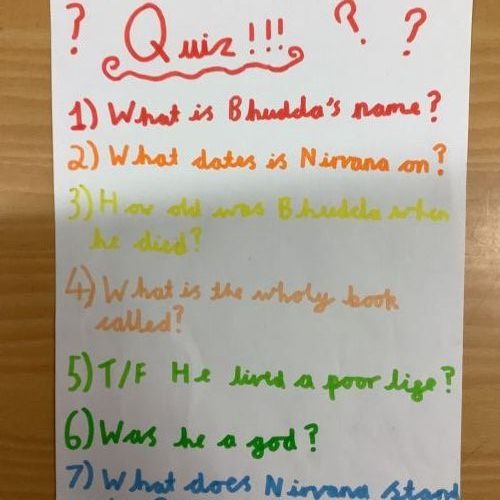 ? Quiz!!! ? ?
1) What is Bhudda's name?
2) What dates is Nirvana on?
3) How old was Bhudda when
he died?
4) What is the wholy book
called?
5) T/F He lived a poor life?
6) Was he a god?
7) What does Nirvana stand